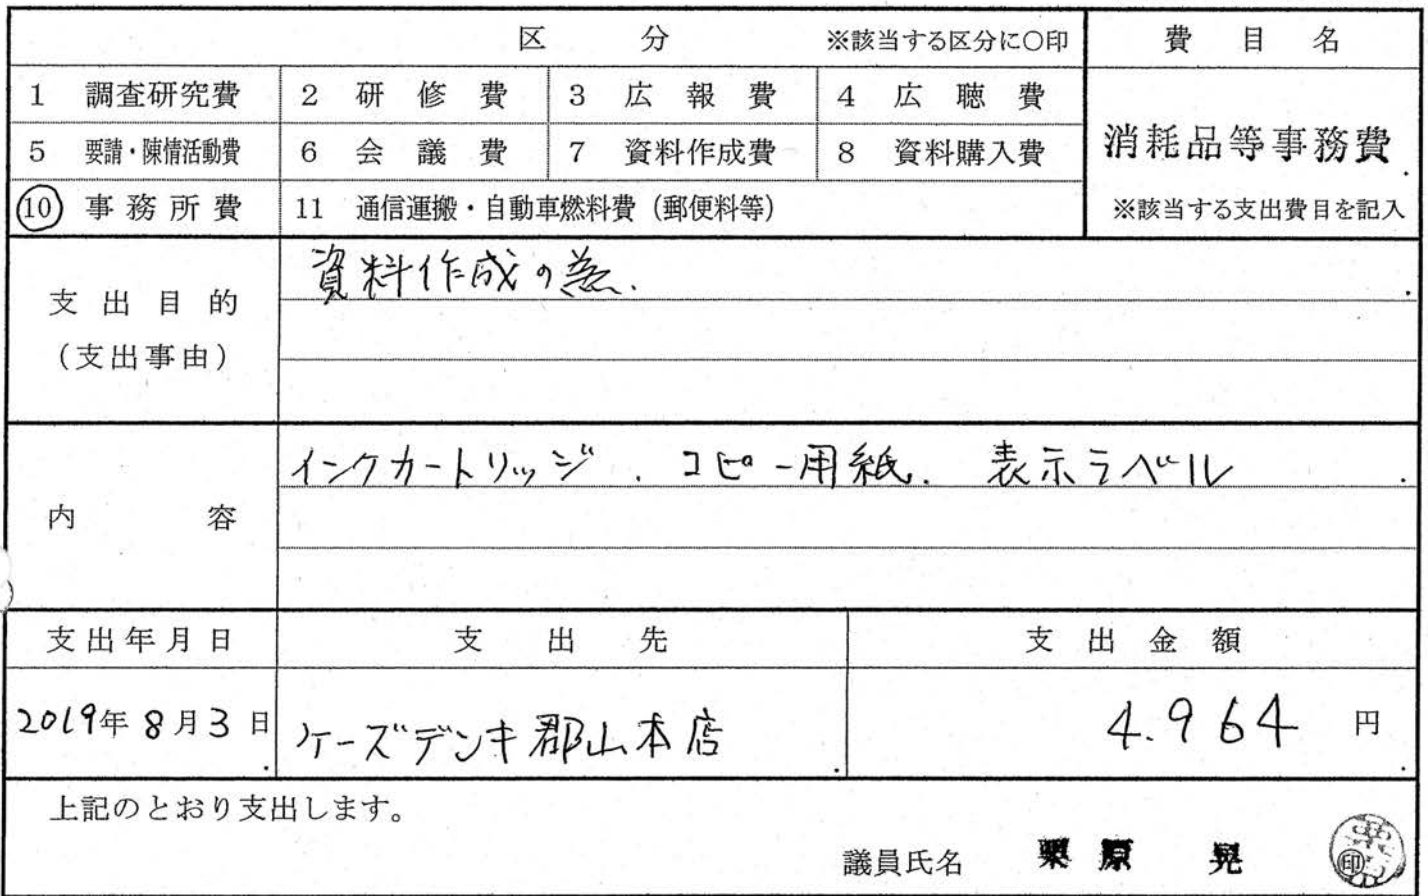 区 分 ※該当する区分に○印 費目名
1 調査研究費 2 研修費 3 広報費 4 広聴費
5 要請・陳情活動費 6 会議費 7 資料作成費 8 資料購入費
消耗品等事務費
10 事務所費 11 通信運搬・自動車燃料費（郵便料等） ※該当する支出費目を記入
支出目的
（支出事由）
資料作成の為.
内容
インクカートリッジ. コピー用紙. 表示ラベル
支出年月日 支出先 支出金額
2019年8月3日 ケーズデンキ郡山本店 4.964円
上記のとおり支出します。
議員氏名 栗原 晃 印